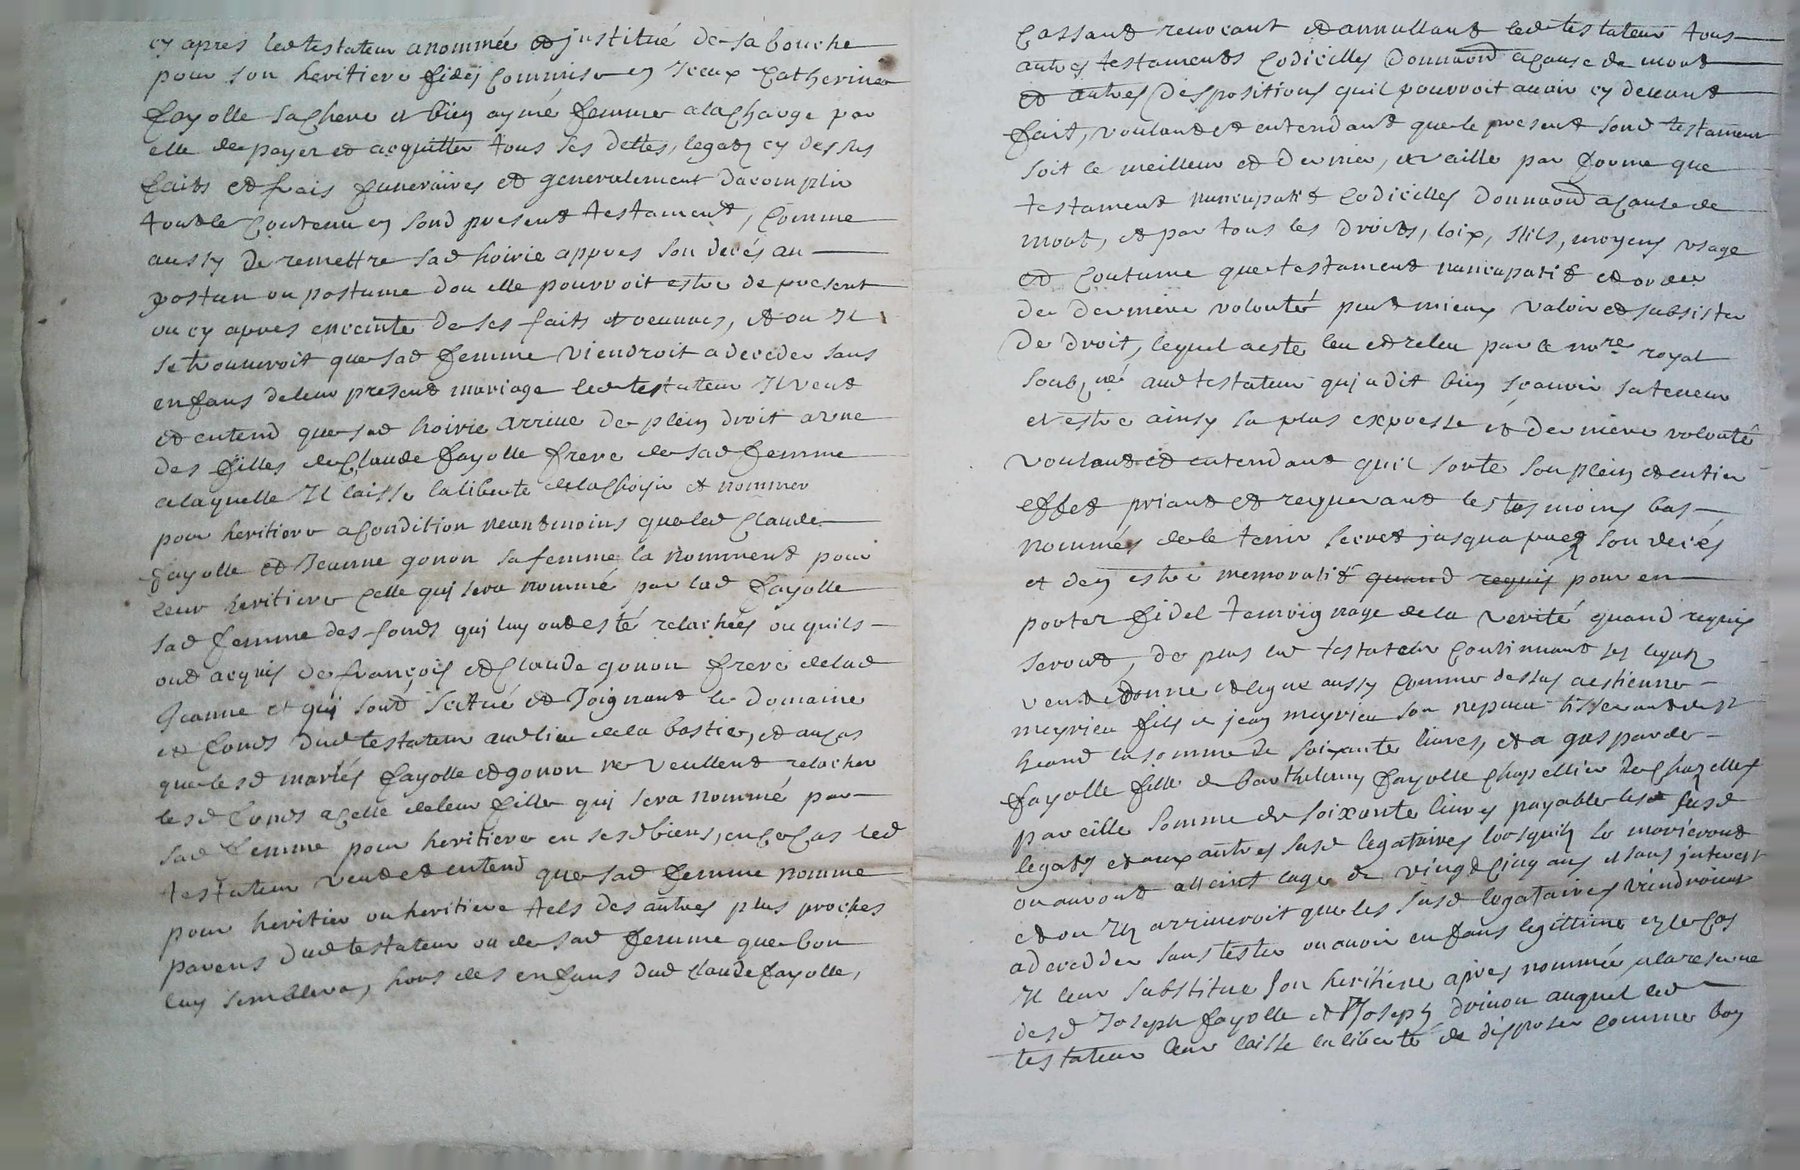 cy apres led testateur a nommée et justitué de sa bouche
pour son heritiere fideij commise en Iceux Catherine
fayolle sa chere et bien aymé femme a la charge par
elle de payer et acquitter tous ses dettes, legatz cy dessus
faits et frais funeraires et generalement dacomplir
tout le contenu en sond present testament, comme
aussy de remettre sad hoirie appres son decés au
postun ou postume dou elle pourroit estre de present
ou cy apres enceinte de ses faits et oeuures, et ou Il
se trouueroit que sad femme viendroit a deceder sans
enfans de leur present mariage led testateur Il veut
et entend que sad hoirie arriue de plein droit a vne
des filles de Claude fayolle frere de sad femme
a laquelle Il laisse la liberte de la choisir et nommer
pour heritiere a condition neantmoins que led Claude
fayolle et Jeanne gonon sa femme la nomment pour
leur heritiere celle qui sera nommé par lad fayolle
sad femme des fonds qui luy ont esté relachées ou quils
ont acquis de françois et Claude gonon frere de lad
Jeanne et qui sont scitué et Joignant le domaine
et fonds dud testateur aud lieu de la bastie, et au cas
que lesd mariés fayolle et gonon ne veullent relacher
lesd fonds a celle de leur fille qui sera nommé par
sad femme pour heritiere en sesd biens, en ce cas led
testateur veut et entend que sad femme nomme
pour heritier ou heritiere tels des autres plus proches
parens dud testateur ou de sad femme que bon
luy semblera, hors des enfans dud Claude fayolle,
Cassant reuocant et annullant led testateur tous
autres testaments Codicilles donnaond a cause de mort
et autres despositions quil pourroit auoir cy deuant
fait, voulant et entendant que le present sond testament
soit le meilleur et dernier, et vaille par forme que
testament nuncupatif Codicilles donnaond a cause de
mort, et par tous les droits, loix, stils, moyens vsage
et Coutume que testament nuncupatif et ordre
de derniere volonté peut mieux valoir et subsister
de droit, lequel a este leu et releu par le no.re royal
soub.né aud testateur qui a dit bien scauoir sa teneur
et estre ainsy sa plus expresse et derniere volonté
voulant et entendant quil sorte son plein et entier
effet priant et requerant les tesmoins bas
nommés de le tenir secret jusqua pres son decés
et den estre memoratif quand requis pour en
porter fidel temoignage de la verité quand requis
seront, de plus led testateur continuant ses legatz
veut donne et legue aussy comme dessus a estienne
meyrieu fils de jean meyrieu son nepueu tisserant de st
heand la somme de soixante liures, et a gasparde
fayolle fille de Barthelemy fayolle chapellier de Chazelles
pareille somme de soixante liures payable lesd susd
legats et aux autres susd legataires lorsquilz se marieront
ou auront atteint lage de vingt cinq ans et sans interest
et ou Ilz arriueroit que les susd legataires viendroient
a decedder sans tester ou auoir enfans legittime en ce cas
Il leur substitue son heritiere apres nommée a la reserue
desd Joseph fayolle et Joseph driuon auquel led
testateur leur laisse la liberté de disposer comme bon